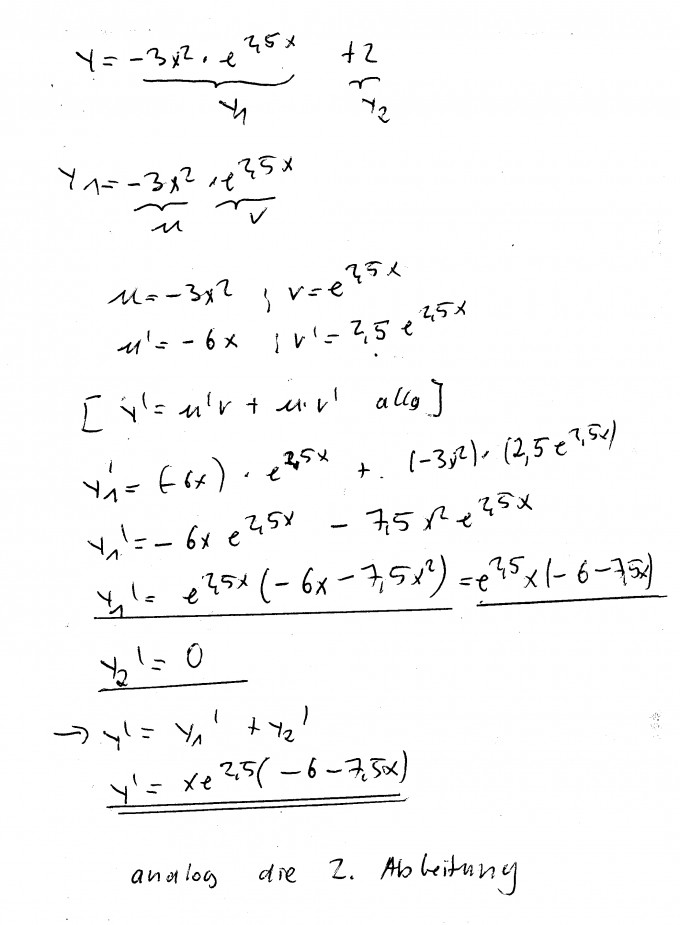 y = -3x² · e^2,5x + 2
y₁ y₂
y₁ = -3x² · e^2,5x
u v
u = -3x² ; v = e^2,5x
u' = -6x ; v' = 2,5 e^2,5x
[ y' = u'v + u·v' allg ]
y₁' = (-6x) · e^2,5x + (-3x²) · (2,5 e^2,5x)
y₁' = -6x e^2,5x - 7,5 x² e^2,5x
y₁' = e^2,5x (-6x - 7,5x²) = e^2,5 x (-6 - 7,5x)
y₂' = 0
→ y' = y₁' + y₂'
y' = x e^2,5 (-6 - 7,5x)
analog die 2. Ableitung